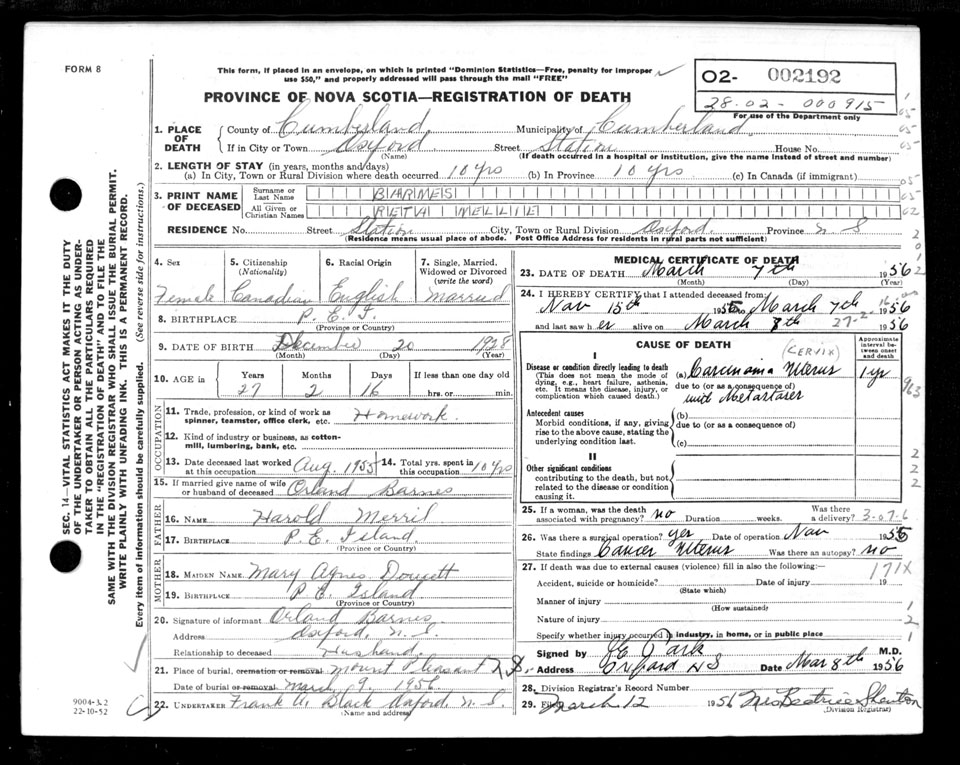 FORM 8
This form, if placed in an envelope, on which is printed "Dominion Statistics—Free, penalty for improper
use $50," and properly addressed will pass through the mail "FREE"
O2- 002192
28-02-000915
For use of the Department only
PROVINCE OF NOVA SCOTIA—REGISTRATION OF DEATH
1. PLACE OF DEATH County of Cumberland Municipality of Cumberland
If in City or Town Oxford (Name) Street Station House No.
(If death occurred in a hospital or institution, give the name instead of street and number)
2. LENGTH OF STAY (in years, months and days)
(a) In City, Town or Rural Division where death occurred 10 yrs (b) In Province 10 yrs (c) In Canada (if immigrant)
3. PRINT NAME OF DECEASED Surname or Last Name BARNES
All Given or Christian Names RETA NELLIE
RESIDENCE No. Street Station City, Town or Rural Division Oxford Province N S
(Residence means usual place of abode. Post Office Address for residents in rural parts not sufficient)
4. Sex Female
5. Citizenship (Nationality) Canadian
6. Racial Origin English
7. Single, Married, Widowed or Divorced (write the word) Married
8. BIRTHPLACE P.E.I.
(Province or Country)
9. DATE OF BIRTH December 20 1928
(Month) (Day) (Year)
10. AGE in Years Months Days If less than one day old
27 2 16 hrs. or min.
OCCUPATION
11. Trade, profession, or kind of work as spinner, teamster, office clerk, etc. Homework
12. Kind of industry or business, as cotton-mill, lumbering, bank, etc.
13. Date deceased last worked at this occupation Aug. 1955
14. Total yrs. spent in this occupation 10 yrs
15. If married give name of wife or husband of deceased Orland Barnes
FATHER
16. NAME Harold Merril
17. BIRTHPLACE P.E. Island
(Province or Country)
MOTHER
18. MAIDEN NAME Mary Agnes Doucett
19. BIRTHPLACE P.E. Island
(Province or Country)
20. Signature of informant Orland Barnes
Address Oxford, N.S.
Relationship to deceased Husband
21. Place of burial, cremation or removal Mount Pleasant N.S.
Date of burial or removal March 9, 1956
22. UNDERTAKER Frank A. Black Oxford, N.S.
(Name and address)
9004-3.2
22-10-52
SEC. 14—VITAL STATISTICS ACT MAKES IT THE DUTY
OF THE UNDERTAKER OR PERSON ACTING AS UNDER-
TAKER TO OBTAIN ALL THE PARTICULARS REQUIRED
IN THE "REGISTRATION OF DEATH" AND TO FILE THE
SAME WITH THE DIVISION REGISTRAR WHO SHALL ISSUE THE BURIAL PERMIT.
WRITE PLAINLY WITH UNFADING INK. THIS IS A PERMANENT RECORD.
Every item of information should be carefully supplied. (See reverse side for instructions.)
MEDICAL CERTIFICATE OF DEATH
23. DATE OF DEATH March 7th 1956
(Month) (Day) (Year)
24. I HEREBY CERTIFY that I attended deceased from:
Nov 15th 1955 to March 7th
and last saw her alive on March 8th 1956
27-2-
CAUSE OF DEATH
Approximate interval between onset and death
I
(CERVIX)
Disease or condition directly leading to death (a) Carcinoma Uterus 1 yr
(This does not mean the mode of dying, e.g., heart failure, asthenia, etc. It means the disease, injury, or complication which caused death.)
due to (or as a consequence of)
with Metastases
Antecedent causes (b)
Morbid conditions, if any, giving rise to the above cause, stating the underlying condition last.
due to (or as a consequence of)
(c)
II
Other significant conditions
contributing to the death, but not related to the disease or condition causing it.
25. If a woman, was the death associated with pregnancy? No Duration weeks. Was there a delivery? 3-07-6
26. Was there a surgical operation? yes Date of operation Nov 1955
State findings Cancer Uterus Was there an autopsy? no
27. If death was due to external causes (violence) fill in also the following:—
171X
Accident, suicide or homicide? Date of injury 19
(State which)
Manner of injury
(How sustained)
Nature of injury
Specify whether injury occurred in industry, in home, or in public place
Signed by E Park M.D.
Address Oxford NS Date Mar 8th 1956
28. Division Registrar's Record Number
29. Filed March 12 1956 Mrs Beatrice Shenton
(Division Registrar)